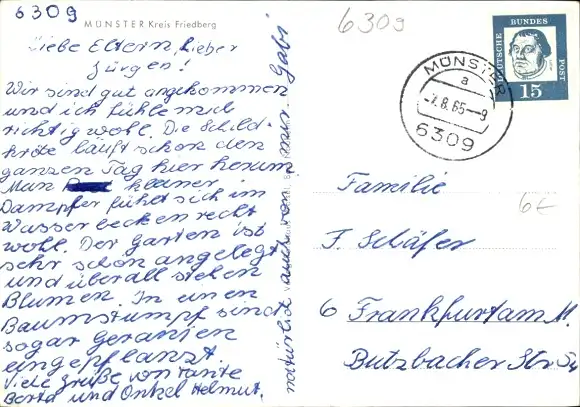 6309
MÜNSTER Kreis Friedberg
Liebe Eltern, Lieber
Jürgen!
Wir sind gut angekommen
und ich fühle mich
richtig wohl. Die Schild-
kröte läuft schon den
ganzen Tag hier herum.
Man kleiner
Dampfer fühlt sich im
Wasserbecken recht
wohl. Der Garten ist
sehr schön angelegt
und überall stehen
Blumen. In einen
Baumstumpf sind
sogar Geranien
eingepflanzt.
Viele Grüße von Tante
Berta und Onkel Helmut.
natürlich auch von mir Gabi
6309
DEUTSCHE BUNDES POST
15
MÜNSTER
a
-7.8.65-9
6309
6€
Familie
F. Schäfer
6 Frankfurt am M.
Butzbacher Str.